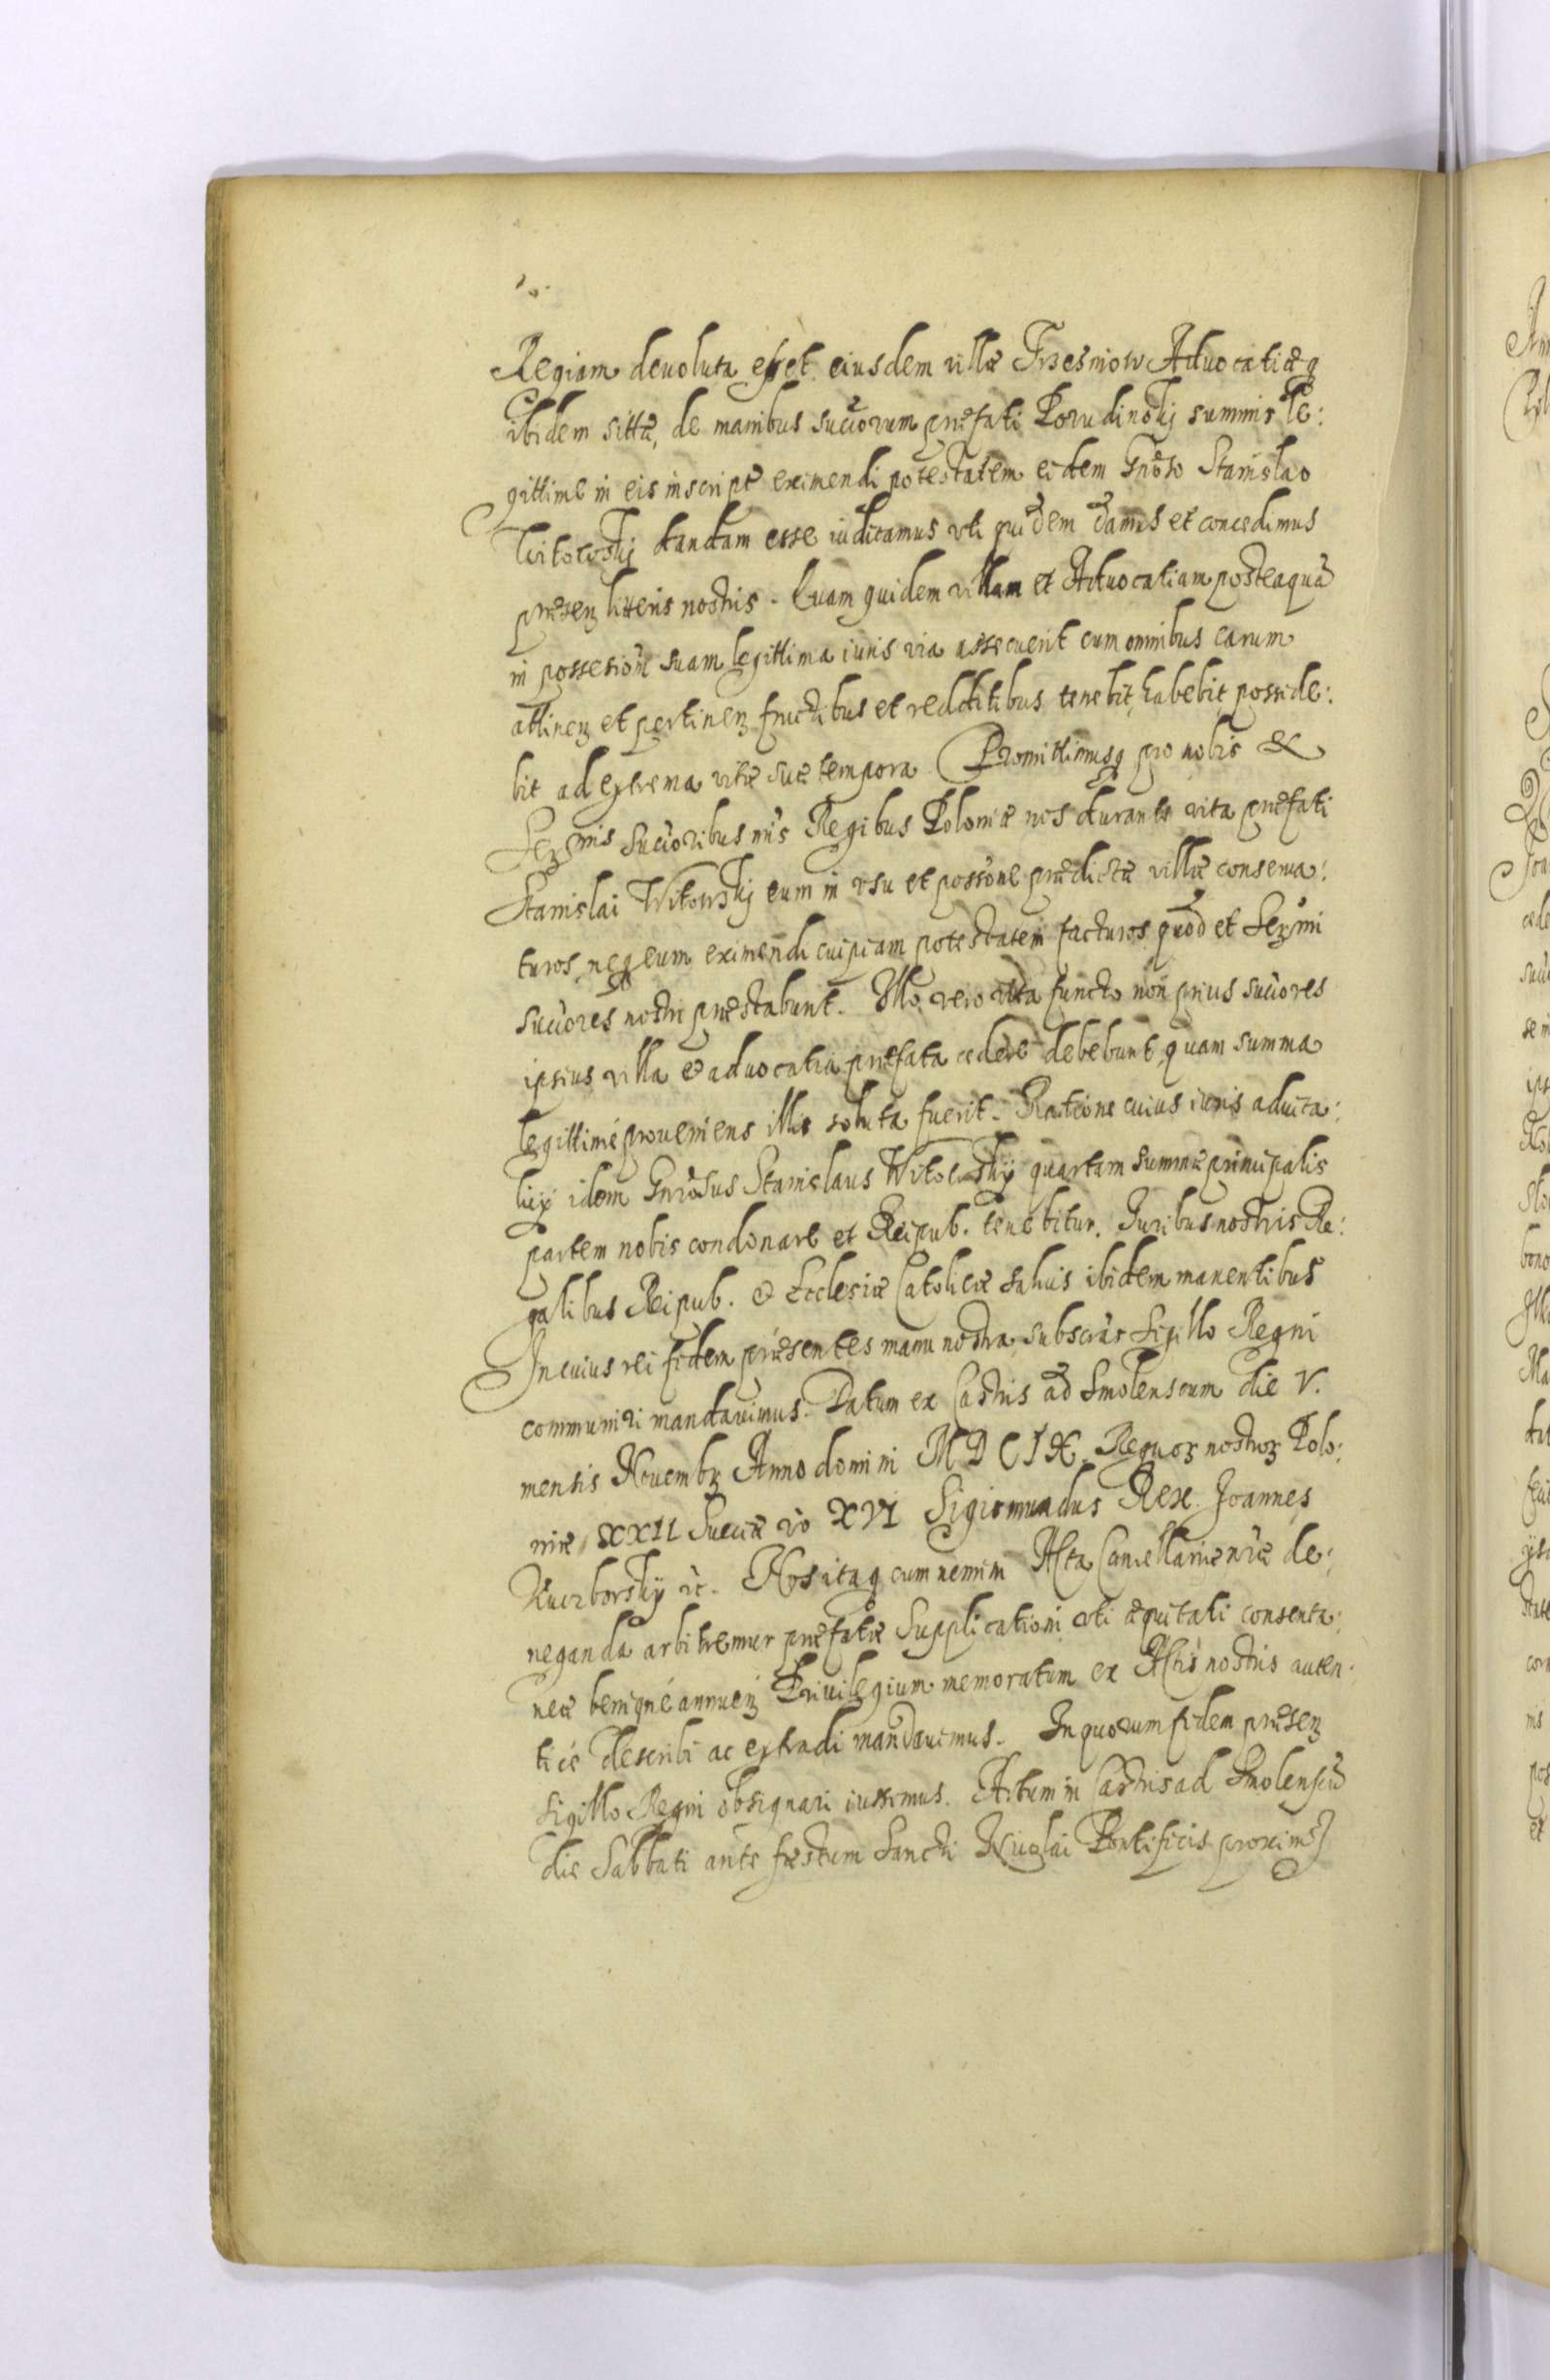 Regiam devoluta esset eiusdem villæ Trzesniow Advocatiæq
ibidem sittæ, de manibus succorum præfati Porudinskÿ summis le:
gittime in eis inscriptę eximendi potestatem eidem Gnoso Stanislao
Witowskÿ dandam esse iudicamus uti quidem damus et concedimus
præsenz litteris nostris. Quam quidem villam et Advocatiam posteaquã
in possesiõne suam legittima iuris via assecuerit cum omnibus earum
attinenz et pertinenz fructibus et redditibus tenebit, habebit, posside:
bit ad extrema vitæ suæ tempora. Promittimusq pro nobis &
Serzmis succoribus nris Regibus Poloniæ nos durante vita præfati
Stanislai Witowskÿ eum in usu et possone prædictæ villæ conserva:
turos, neq eum eximendi cuipiam potestatem facturos, quod et Serzmi
succores nostri præstabunt. Illo vero vita functo non prius succores
ipsius villa & advocatia præfata cedere debebunt, quam summa
legittimè proveniens illis soluta fuerit. Ratione cuius iuris advita:
licÿ idem Gnrosus Stanislaus Witowskÿ quartam summæ principalis
partem nobis condonare et Reipub. tenebitur. Iuribus nostris Re:
galibus Reipub. & Ecclesiæ Catolicæ salvis ibidem manentibus
In cuius rei fidem præsentes manu nostra subscras Sigillo Regni
communiri mandavimus. Datum ex Castris ad Smolenscum die V.
mensis Novembz Anno domini MDCIX. Regnorz nostrorz Polo:
niæ XXII Sueciæ vo XVI Sigismundus Rex. Joannes
Kuczborskÿ &c. Nos itaq cum nemini Acta Cancellariæ nræ de:
neganda arbitremur præfatæ Supplicationi uti æquitati consenta:
neæ benignè annuenz Privilegium memoratum ex Actis nostris auten:
ticè describi ac extradi mandavimus. In quorum fidem præsenz
sigillo Regni obsignari iussimus. Actum in Castris ad Smolenscũ
die Sabbati ante fæstum Sancti Nicolai Pontificis proximo